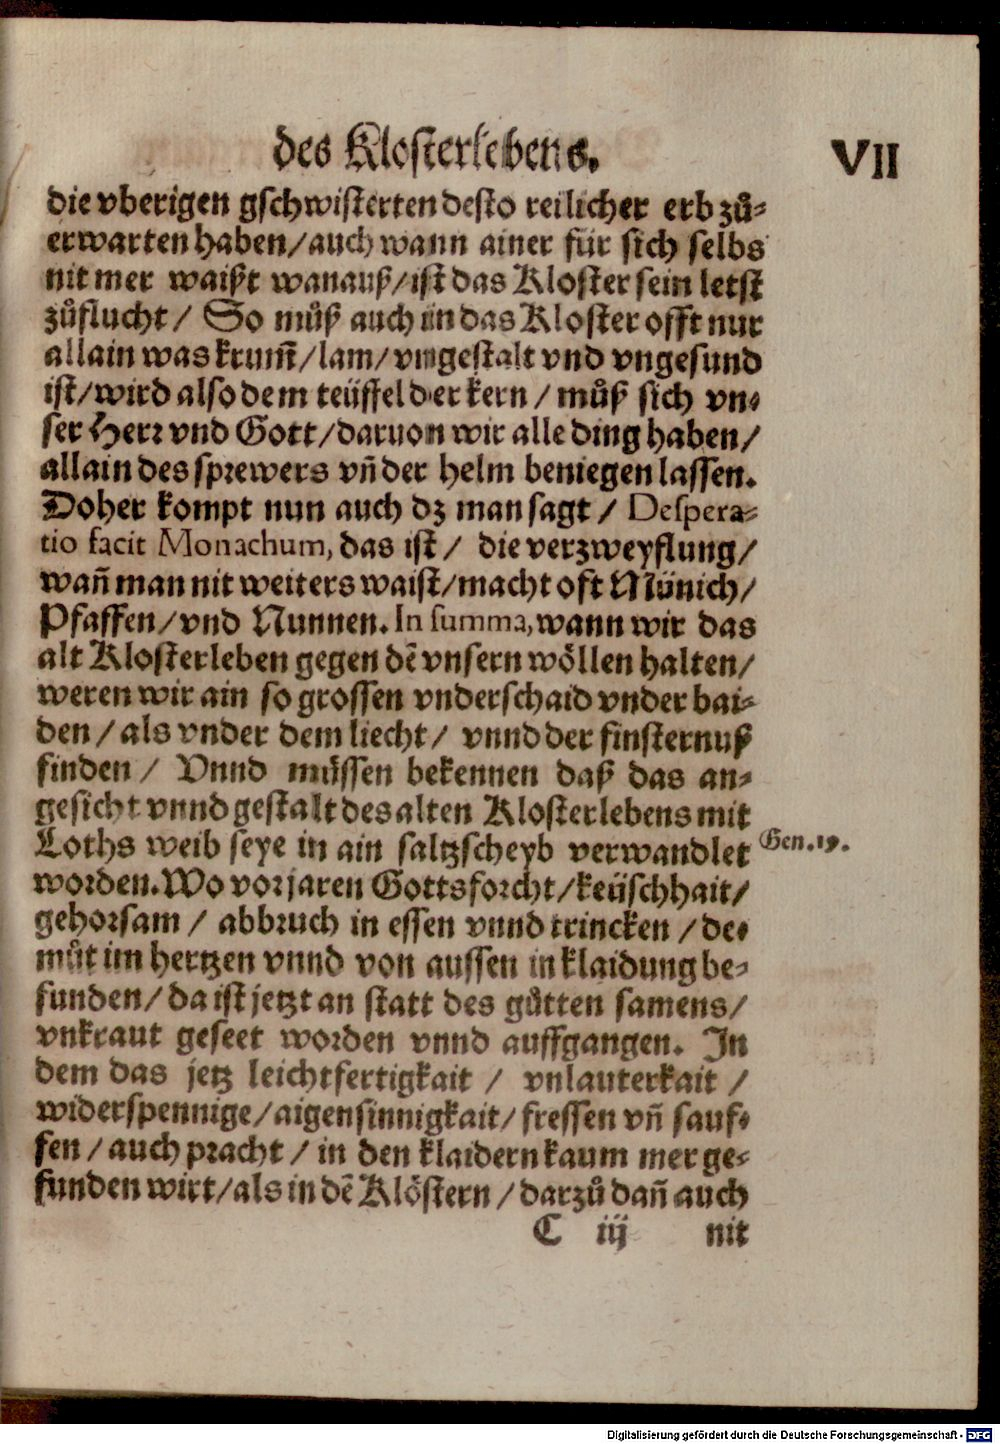 des Klosterlebens. VII
die vberigen gschwisterten desto reilicher erb zů-
erwarten haben/auch wann ainer für sich selbs
nit mer waißt wanauß/ist das Kloster sein letst
zůflucht/ So můß auch in das Kloster offt nur
allain was krum̃/lam/vngestalt vnd vngesund
ist/wird also dem teüffel der kern/můß sich vn-
ser Herr vnd Gott/daruon wir alle ding haben/
allain des sprewers vñ der helm beniegen lassen.
Doher kompt nun auch dz man sagt/ Despera-
tio facit Monachum, das ist/ die verzweyflung/
wañ man nit weiters waist/macht oft Münich/
Pfaffen/vnd Nunnen. In summa, wann wir das
alt Klosterleben gegen dẽ vnsern wöllen halten/
weren wir ain so grossen vnderschaid vnder bai-
den/als vnder dem liecht/ vnnd der finsternuß
finden/ Vnnd müssen bekennen daß das an-
gesicht vnnd gestalt des alten Klosterlebens mit
Loths weib seye in ain saltzscheyb verwandlet
Gen. 19.
worden. Wo vor jaren Gottsforcht/keüschhait/
gehorsam/ abbruch in essen vnnd trincken/de-
můt im hertzen vnnd von aussen in klaidung be-
funden/da ist jetzt an statt des gůtten samens/
vnkraut geseet worden vnnd auffgangen. In
dem das jetz leichtfertigkait/ vnlauterkait/
widerspennige/aigensinnigkait/fressen vñ sauf-
fen/auch pracht/in den klaidern kaum mer ge-
funden wirt/als in dẽ Klöstern/darzů dañ auch
C iij nit
Digitalisierung gefördert durch die Deutsche Forschungsgemeinschaft - DFG